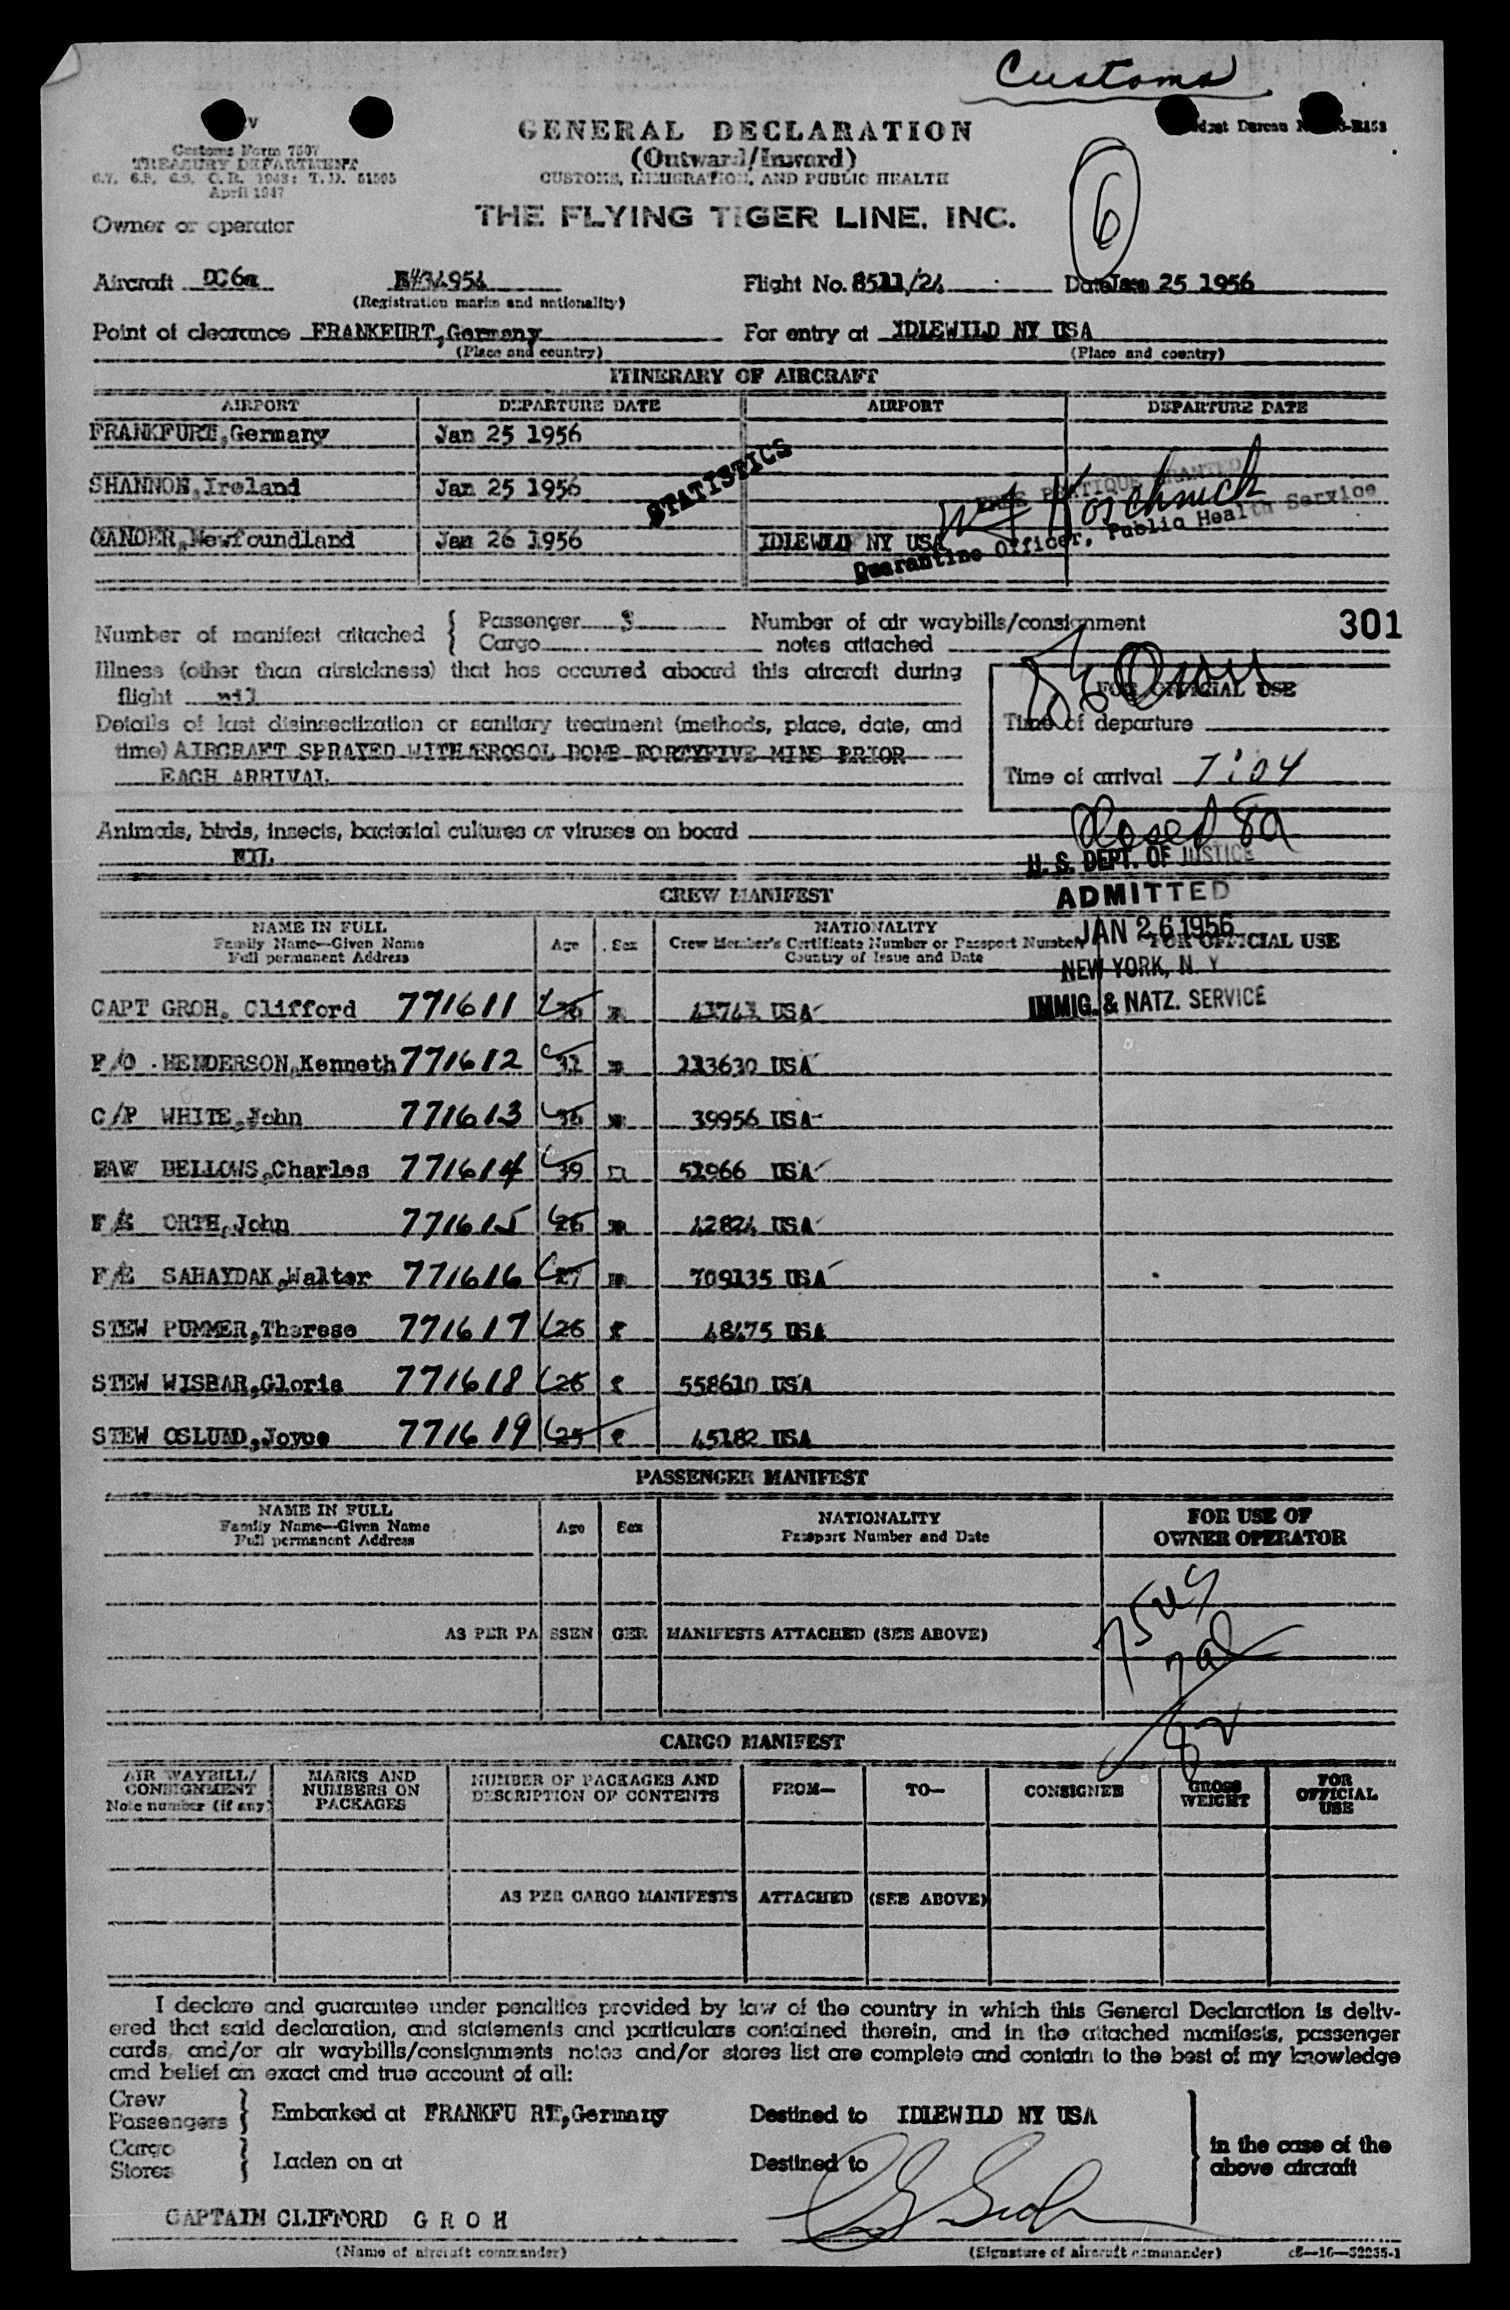 Customs
GENERAL DECLARATION
(Outward/Inward)
CUSTOMS, IMMIGRATION, AND PUBLIC HEALTH
Customs Form 7507
TREASURY DEPARTMENT
6.7, 6.8, 6.9, C. R. 1943; T. D. 51595
April 1947
6
Owner or operator THE FLYING TIGER LINE, INC.
Aircraft DC6a Flight No. 8511/24 Date Jan 25 1956
(Registration marks and nationality)
Point of clearance FRANKFURT, Germany For entry at IDLEWILD NY USA
(Place and country) (Place and country)
ITINERARY OF AIRCRAFT
AIRPORT DEPARTURE DATE AIRPORT DEPARTURE DATE
FRANKFURT, Germany Jan 25 1956
STATISTICS
SHANNON, Ireland Jan 25 1956
FREE PRATIQUE GRANTED
GANDER, Newfoundland Jan 26 1956 IDLEWILD NY USA
Quarantine Officer, Public Health Service
Number of manifest attached { Passenger 3 Number of air waybills/consignment 301
Cargo notes attached
Illness (other than airsickness) that has occurred aboard this aircraft during
flight nil
FOR OFFICIAL USE
Details of last disinsectization or sanitary treatment (methods, place, date, and
Time of departure
time) AIRCRAFT SPRAYED WITH AEROSOL BOMB FORTYFIVE MINS PRIOR
EACH ARRIVAL
Time of arrival 7:04
Animals, birds, insects, bacterial cultures or viruses on board
NIL
Closed
U. S. DEPT. OF JUSTICE
ADMITTED
JAN 26 1956
NEW YORK, N. Y.
IMMIG. & NATZ. SERVICE
CREW MANIFEST
NAME IN FULL Age Sex NATIONALITY FOR OFFICIAL USE
Family Name—Given Name Crew Member's Certificate Number or Passport Number
Full permanent Address Country of Issue and Date
CAPT GROH, Clifford 771611 m USA
F/O HENDERSON, Kenneth 771612 m USA
C/P WHITE, John 771613 36 m 39956 USA
NAV BELLOWS, Charles 771614 39 m USA
F/E ORTH, John 771615 m 42824 USA
F/E SAHAYDAK, Walter 771616 m 709135 USA
STEW PUMMER, Therese 771617 26 f 48475 USA
STEW WISBAR, Gloria 771618 f 558610 USA
STEW OSLUND, Joyce 771619 25 f 45182 USA
PASSENGER MANIFEST
NAME IN FULL Age Sex NATIONALITY FOR USE OF
Family Name—Given Name Passport Number and Date OWNER OPERATOR
Full permanent Address
AS PER PASSENGER MANIFESTS ATTACHED (SEE ABOVE)
CARGO MANIFEST
AIR WAYBILL/ MARKS AND NUMBER OF PACKAGES AND FROM— TO— CONSIGNEE GROSS FOR
CONSIGNMENT NUMBERS ON DESCRIPTION OF CONTENTS WEIGHT OFFICIAL
Note number (if any) PACKAGES USE
AS PER CARGO MANIFESTS ATTACHED (SEE ABOVE)
I declare and guarantee under penalties provided by law of the country in which this General Declaration is deliv-
ered that said declaration, and statements and particulars contained therein, and in the attached manifests, passenger
cards, and/or air waybills/consignments notes and/or stores list are complete and contain to the best of my knowledge
and belief an exact and true account of all:
Crew
Passengers } Embarked at FRANKFURT, Germany Destined to IDLEWILD NY USA
in the case of the
above aircraft
Cargo
Stores } Laden on at Destined to
CAPTAIN CLIFFORD G R O H
(Name of aircraft commander) (Signature of aircraft commander)